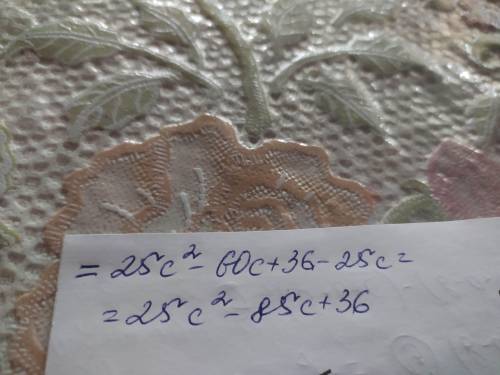 = 25c² - 60c + 36 - 25c =
= 25c² - 85c + 36